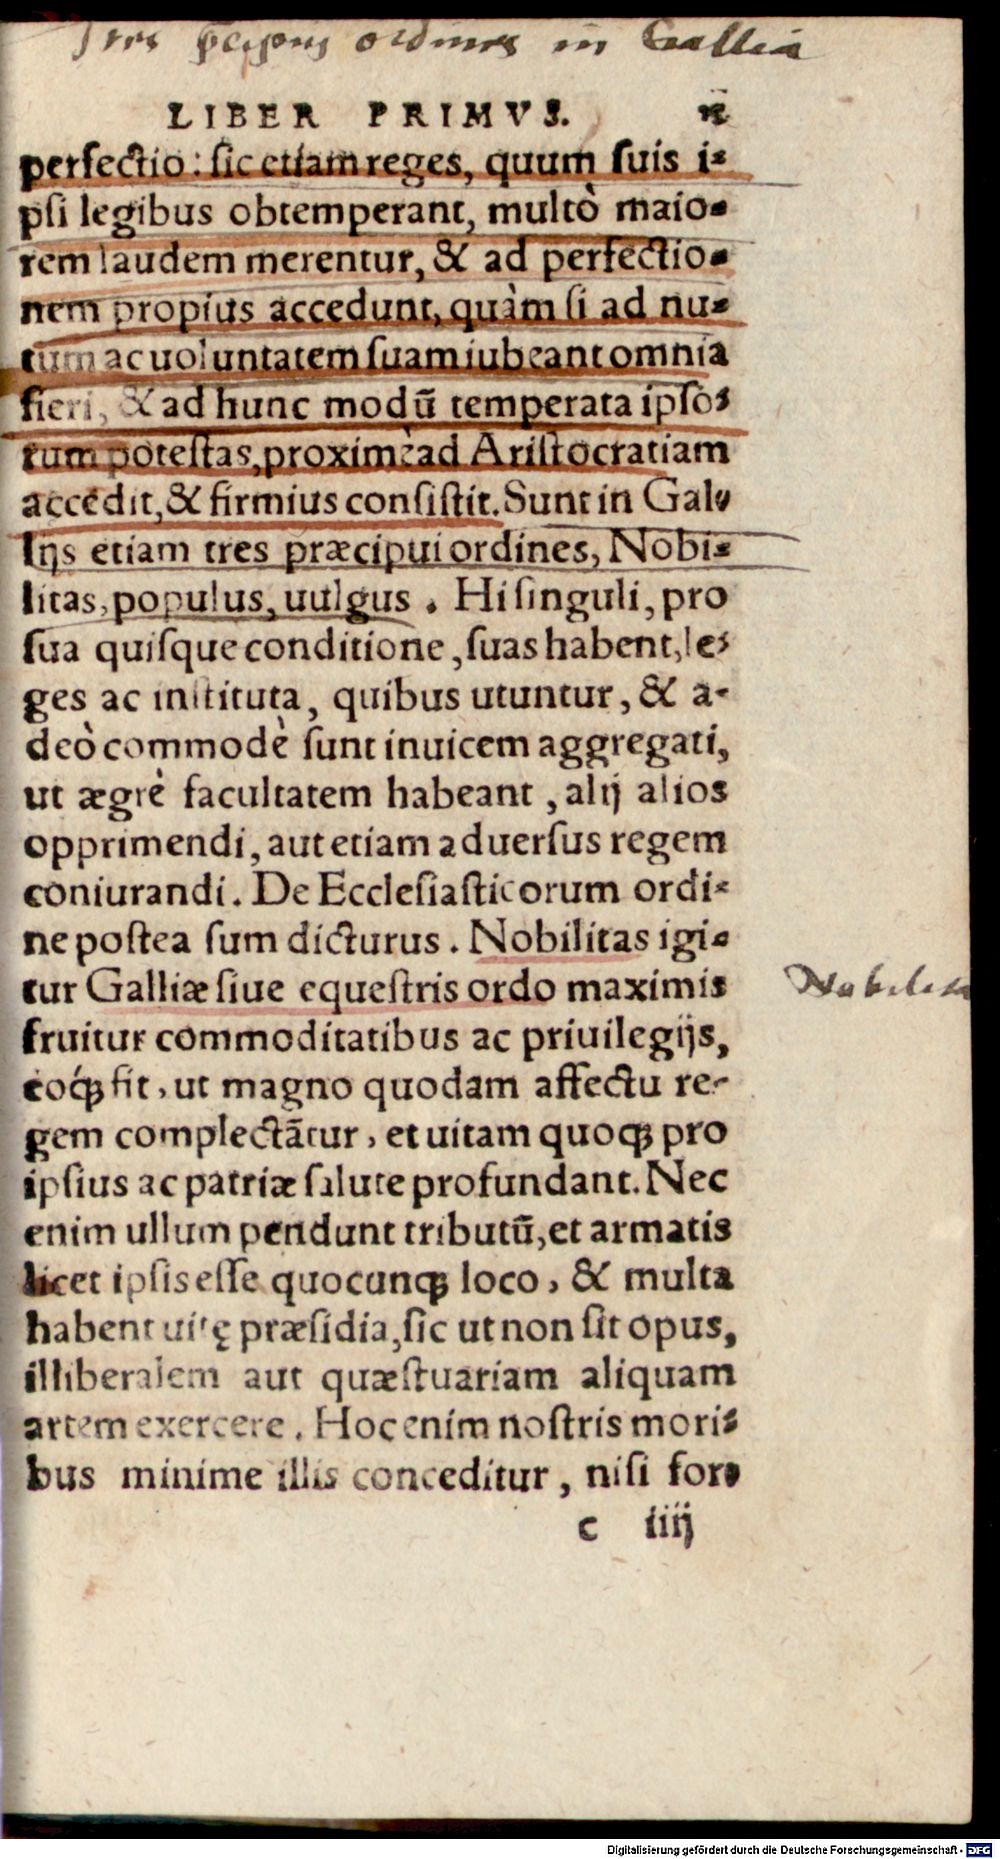 Tres p̄cipui ordines in Gallia
LIBER PRIMVS.
perfectio: sic etiam reges, quum suis i-
psi legibus obtemperant, multò maio-
rem laudem merentur, & ad perfectio-
nem propius accedunt, quàm si ad nu-
tum ac uoluntatem suam iubeant omnia
fieri, & ad hunc modū temperata ipso-
rum potestas, proximè ad Aristocratiam
accedit, & firmius consistit. Sunt in Gal-
lijs etiam tres præcipui ordines, Nobi-
litas, populus, uulgus. Hi singuli, pro
sua quisque conditione, suas habent, le-
ges ac instituta, quibus utuntur, & a-
deò commodè sunt inuicem aggregati,
ut ægrè facultatem habeant, alij alios
opprimendi, aut etiam aduersus regem
coniurandi. De Ecclesiasticorum ordi-
ne postea sum dicturus. Nobilitas igi-
tur Galliæ siue equestris ordo maximis
Nobilitas
fruitur commoditatibus ac priuilegijs,
eoq́ꝫ fit, ut magno quodam affectu re-
gem complectātur, et uitam quoqꝫ pro
ipsius ac patriæ salute profundant. Nec
enim ullum pendunt tributū, et armatis
licet ipsis esse quocunqꝫ loco, & multa
habent uitę præsidia, sic ut non sit opus,
illiberalem aut quæstuariam aliquam
artem exercere. Hoc enim nostris mori-
bus minime illis conceditur, nisi for-
c iiij
Digitalisierung gefördert durch die Deutsche Forschungsgemeinschaft - DFG